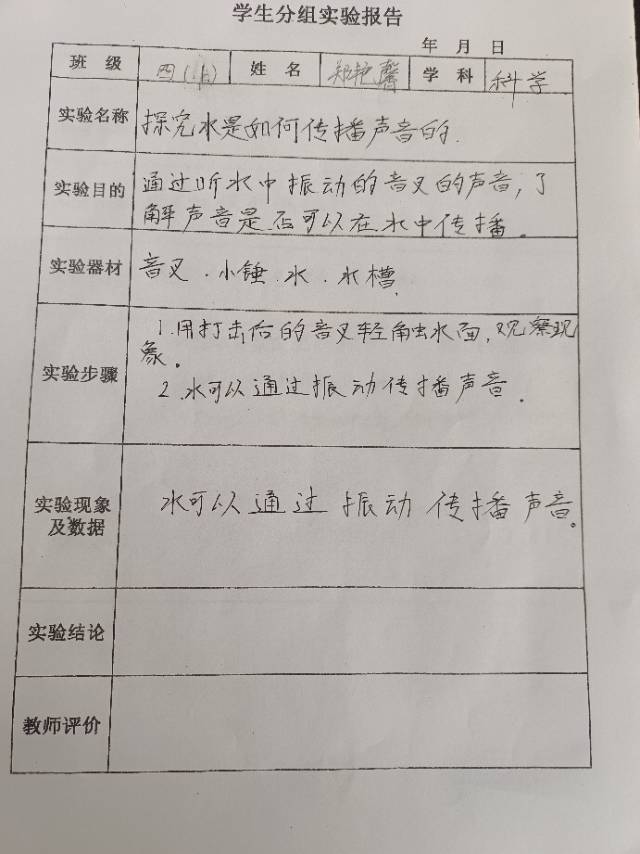 学生分组实验报告
年 月 日
班 级 四（上） 姓 名 郑艳馨 学 科 科学
实验名称 探究水是如何传播声音的.
实验目的 通过听水中振动的音叉的声音,了
解声音是否可以在水中传播。
实验器材 音叉 . 小锤 . 水 . 水槽
实验步骤 1.用打击后的音叉轻触水面,观察现
象。
2.水可以通过振动传播声音.
实验现象及数据 水可以通过振动传播声音。
实验结论
教师评价